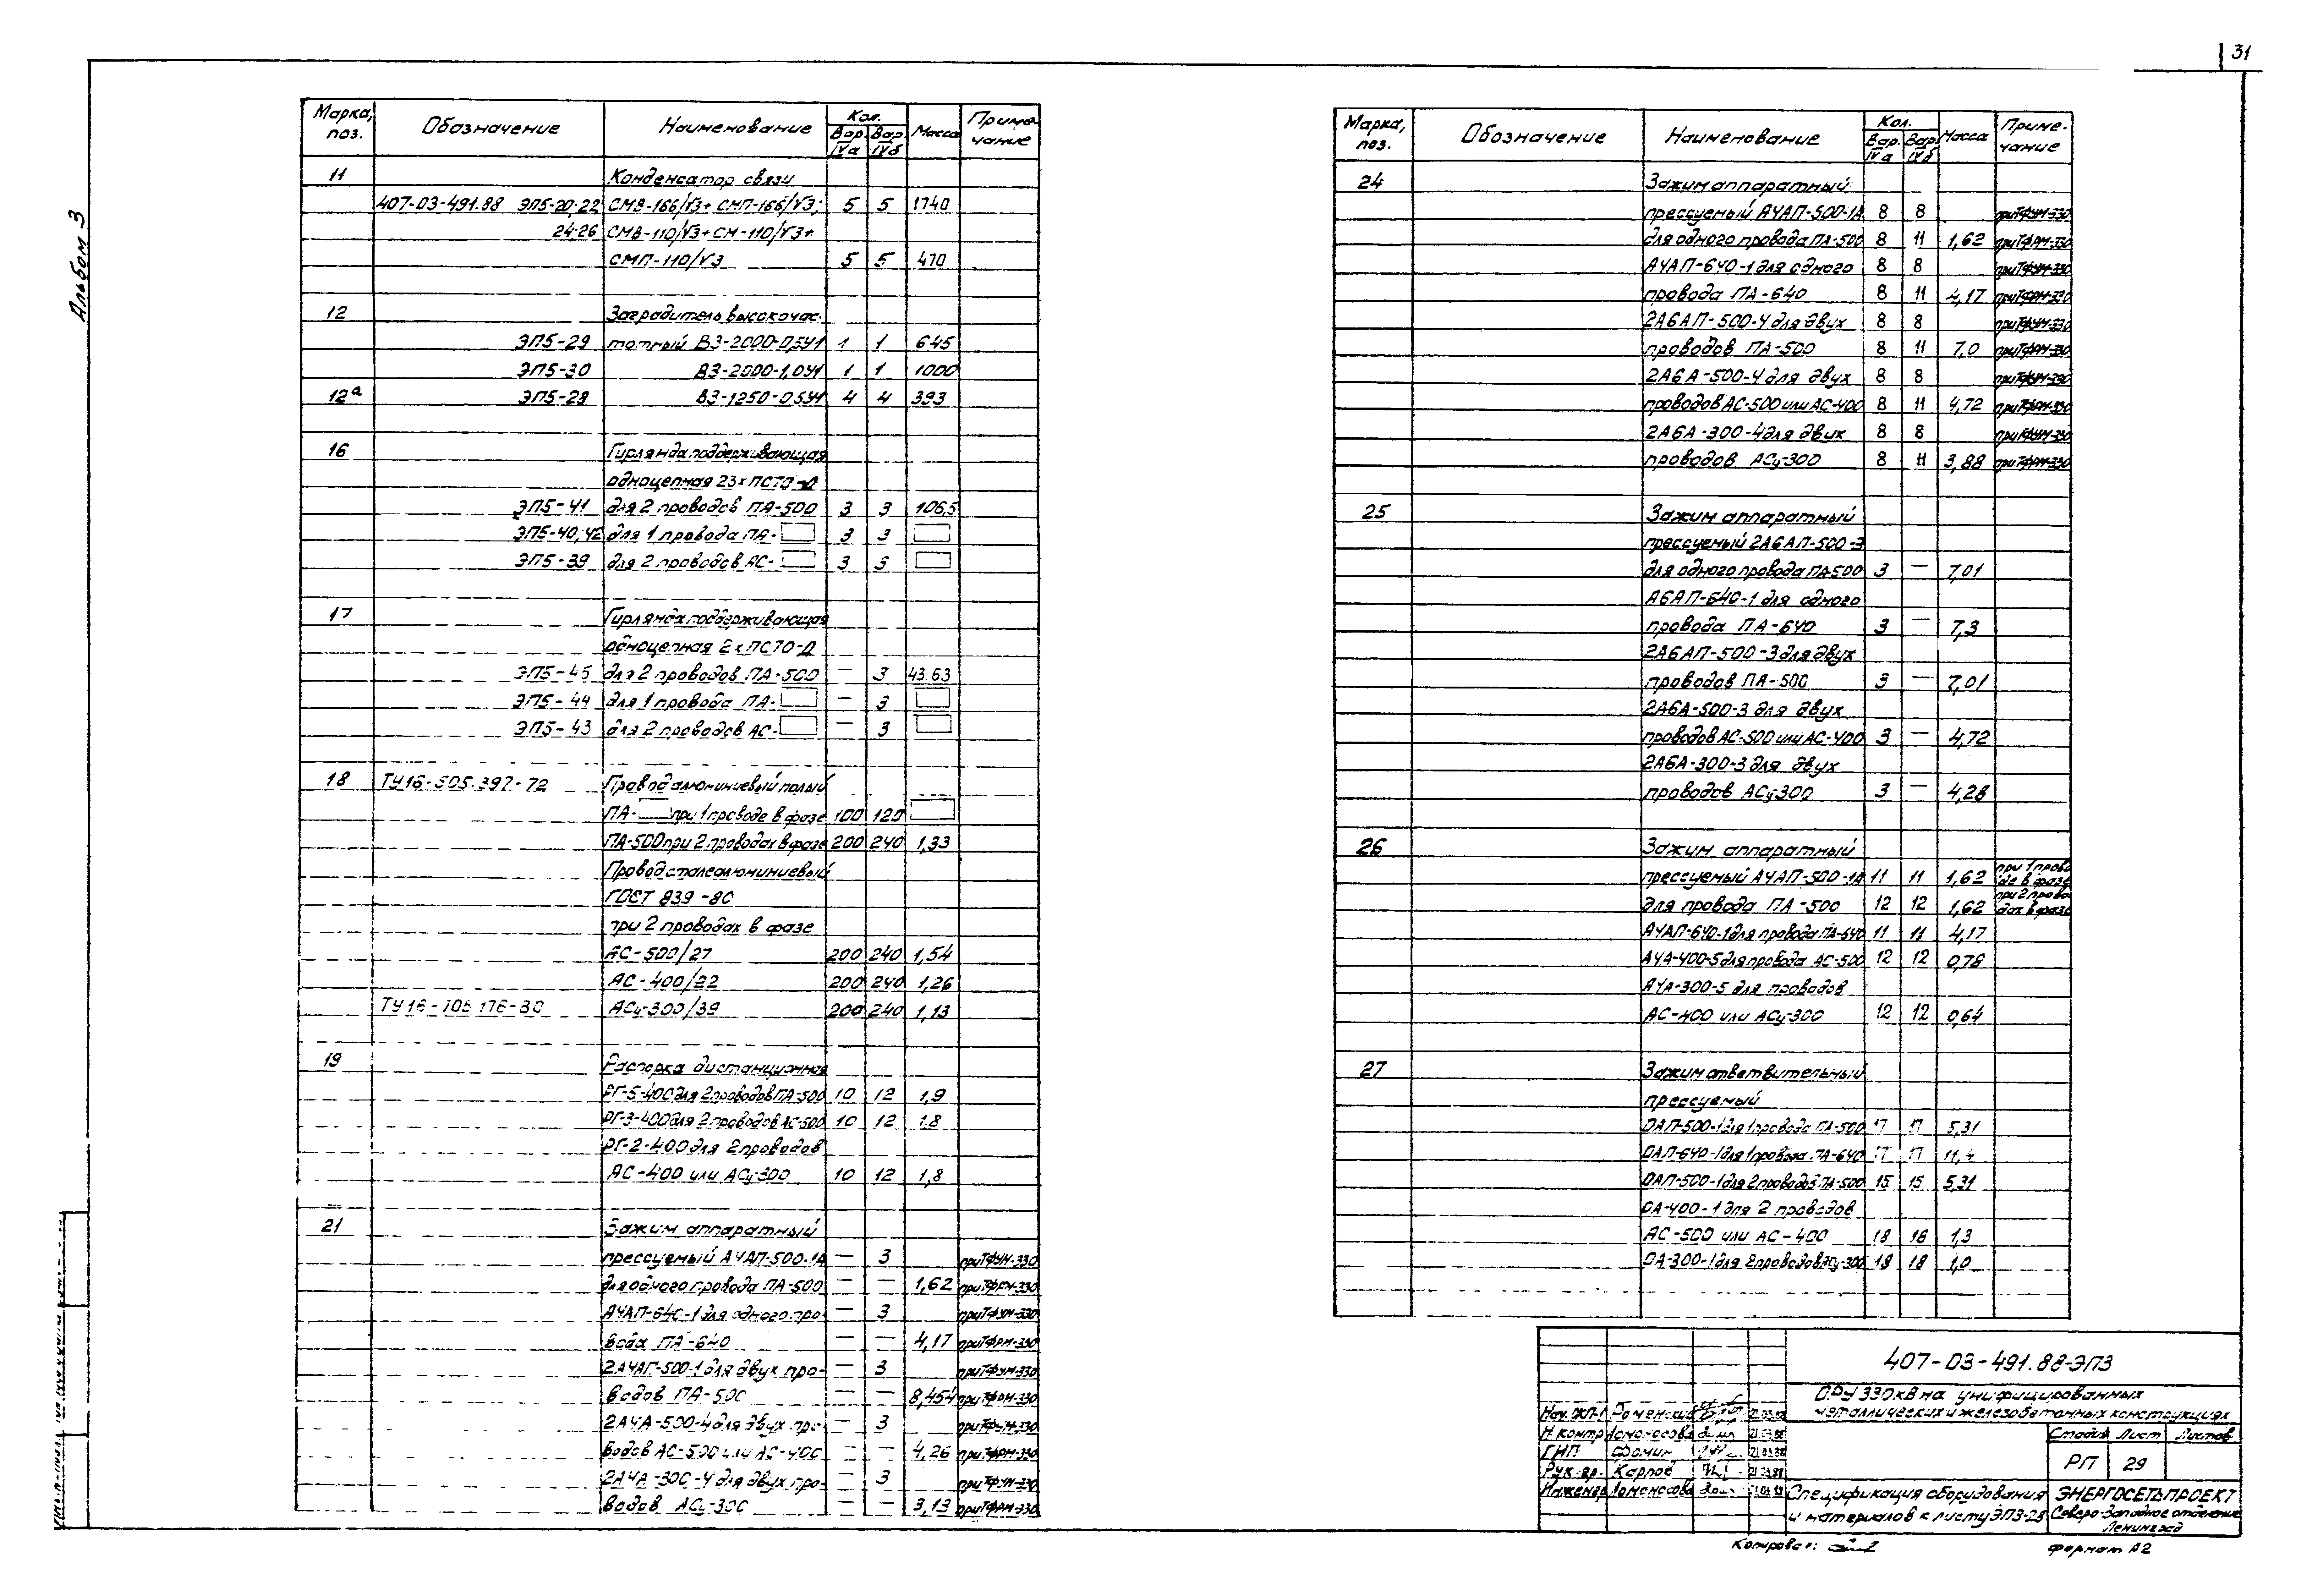 31
Альбом 3
Марка, поз. Обозначение Наименование Кол. Вар. IVа Вар. IVб Масса Примечание
11 Конденсатор связи
407-03-491.88 ЭП5-20;22 СМВ-166/√3+СМП-166/√3; 5 5 1740
24;26 СМВ-110/√3+СМ-110/√3+
СМП-110/√3 5 5 470
12 Заградитель высокочас-
ЭП5-29 тотный ВЗ-2000-0,5У1 1 1 645
ЭП5-30 ВЗ-2000-1,0У1 1 1 1000
12а ЭП5-28 ВЗ-1250-0,5У1 4 4 393
16 Гирлянда поддерживающая
одноцепная 23×ПС70-Д
ЭП5-41 для 2 проводов ПА-500 3 3 106,5
ЭП5-40,42 для 1 провода ПА- 3 3
ЭП5-39 для 2 проводов АС- 3 3
17 Гирлянда поддерживающая
одноцепная 2×ПС70-Д
ЭП5-45 для 2 проводов ПА-500 — 3 43.63
ЭП5-44 для 1 провода ПА- — 3
ЭП5-43 для 2 проводов АС- — 3
18 ТУ16-505.397-72 Провод алюминиевый полый
ПА- при 1 проводе в фазе 100 120
ПА-500 при 2 проводах в фазе 200 240 1,33
Провод сталеалюминиевый
ГОСТ 839-80
при 2 проводах в фазе
АС-500/27 200 240 1,54
АС-400/22 200 240 1,26
АСу-300/39 200 240 1,13
19 Распорка дистанционная
РГ-5-400 для 2 проводов ПА-500 10 12 1,9
РГ-3-400 для 2 проводов АС-500 10 12 1.8
РГ-2-400 для 2 проводов
АС-400 или АСу-300 10 12 1,8
21 Зажим аппаратный
прессуемый А4АП-500-1А — 3 при ТФУМ-330
для одного провода ПА-500 — — 1,62 при ТФРМ-330
А4АП-640-1 для одного про- — 3 при ТФУМ-330
вода ПА-640 — — 4,17 при ТФРМ-330
2А4АП-500-1 для двух про- — 3 при ТФУМ-330
водов ПА-500 — — 8,454 при ТФРМ-330
2А4А-500-4 для двух про- — 3 при ТФУМ-330
водов АС-500 или АС-400 — — 4,26 при ТФРМ-330
2А4А-300-4 для двух про- — 3 при ТФУМ-330
водов АСу-300 — — 3,13 при ТФРМ-330
Марка, поз. Обозначение Наименование Кол. Вар. IVа Вар. IVб Масса Приме-чание
24 Зажим аппаратный
прессуемый А4АП-500-1А 8 8 при ТФУМ-330
для одного провода ПА-500 8 11 1,62 при ТФРМ-330
А4АП-640-1 для одного 8 8 при ТФУМ-330
провода ПА-640 8 11 4,17 при ТФРМ-330
2А6АП-500-4 для двух 8 8 при ТФУМ-330
проводов ПА-500 8 11 7,0 при ТФРМ-330
2А6А-500-4 для двух 8 8 при ТФУМ-330
проводов АС-500 или АС-400 8 11 4,72 при ТФРМ-330
2А6А-300-4 для двух 8 8 при ТФУМ-330
проводов АСу-300 8 11 3,88 при ТФРМ-330
25 Зажим аппаратный
прессуемый 2А6АП-500-3
для одного провода ПА-500 3 — 7,01
А6АП-640-1 для одного
провода ПА-640 3 — 7,3
2А6АП-500-3 для двух
проводов ПА-500 3 — 7,01
2А6А-500-3 для двух
проводов АС-500 или АС-400 3 — 4,72
2А6А-300-3 для двух
проводов АСу-300 3 — 4,28
26 Зажим аппаратный
прессуемый А4АП-500-1А 11 11 1,62 при 1 прово-де в фазе
для провода ПА-500 12 12 1,62 при 2 прово-дах в фазе
А4АП-640-1 для провода ПА-640 11 11 4,17
А4А-400-5 для провода АС-500 12 12 0,78
А4А-300-5 для проводов
АС-400 или АСу-300 12 12 0,64
27 Зажим ответвительный
прессуемый
ОАП-500-1 для 1 провода ПА-500 17 17 5,31
ОАП-640-1 для 1 провода ПА-640 17 17 11,4
ОАП-500-1 для 2 проводов ПА-500 15 15 5,31
ОА-400-1 для 2 проводов
АС-500 или АС-400 18 16 1,3
ОА-300-1 для 2 проводов АСу-300 18 18 1,0
407-03-491.88-ЭП3
ОРУ 330 кВ на унифицированных
металлических и железобетонных конструкциях
Стадия Лист Листов
РП 29
Н. контр Ломоносова 21.03.88
ГИП Фомин 21.03.88
Рук. гр. Карпов 21.03.88
Инженер Ломоносова
Спецификация оборудования
и материалов к листу ЭП3-28
ЭНЕРГОСЕТЬПРОЕКТ
Северо-Западное отделение
Ленинград
Копировал:
Формат А2